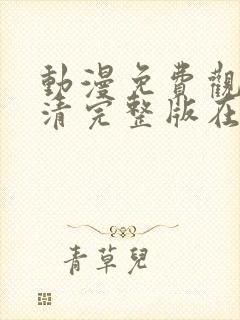 動漫免費觀
清完整版在
青草兒